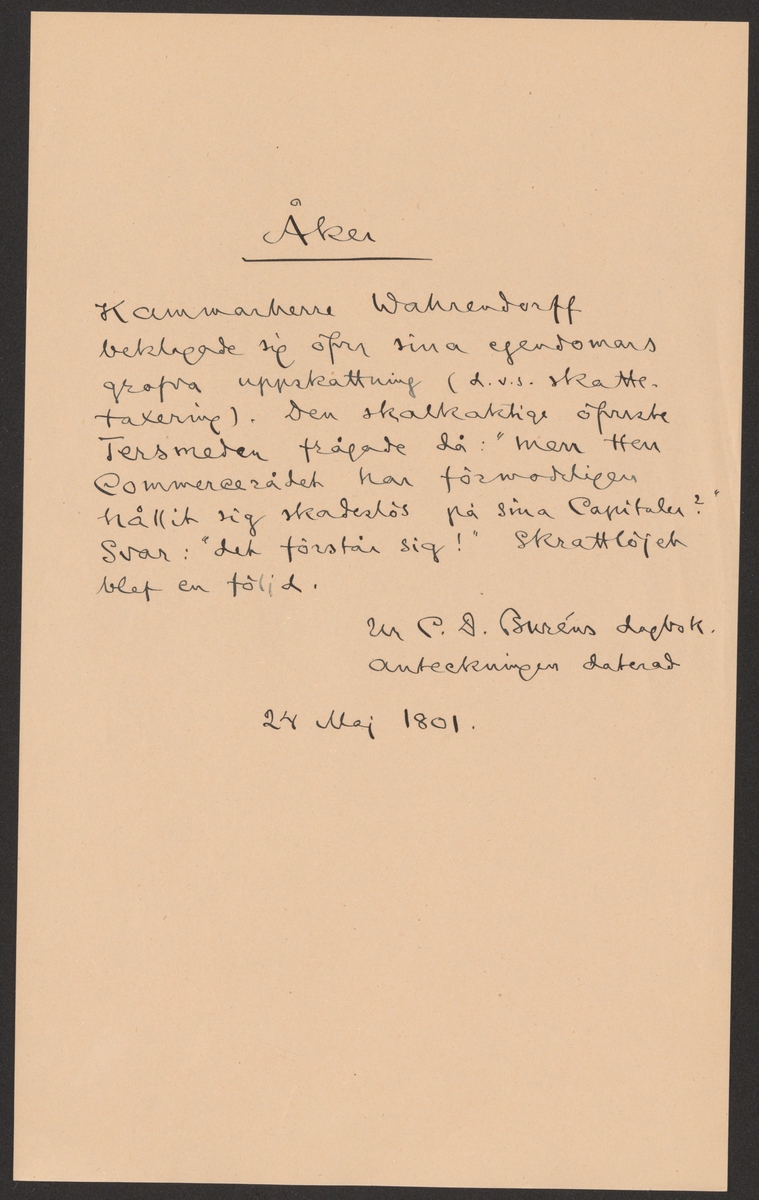 Åker
Kammarherre Wahrendorff
beklagade sig öfver sina egendomars
grofva uppskattning (d.v.s. skatte-
taxering). Den skalkaktige öfverste
Tersmeden frågade då: "men Herr
Commercerådet har förmodeligen
hållit sig skadeslös på sina Capitaler?"
Svar: "det förstår sig!" Skrattlöjet
blef en följd.
Ur P. D. Buréns dagbok.
Anteckningen daterad
24 Maj 1801.